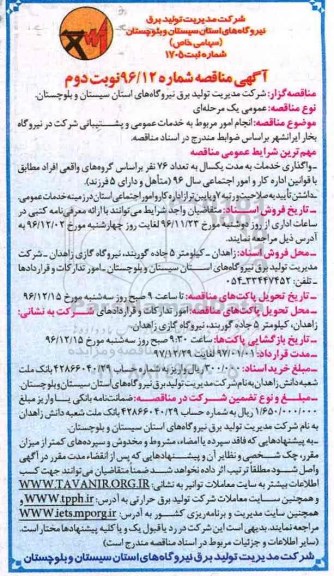 شرکت مدیریت تولید برق
نیروگاه‌های استان سیستان و بلوچستان
(سهامی خاص)
شماره ثبت ۱۷۰۵
آگهی مناقصه شماره ۹۶/۱۲ نوبت دوم
مناقصه‌گزار: شرکت مدیریت تولید برق نیروگاه‌های استان سیستان و بلوچستان.
نوع مناقصه: عمومی یک مرحله‌ای
موضوع مناقصه: انجام امور مربوط به خدمات عمومی و پشتیبانی شرکت در نیروگاه
بخار ایرانشهر براساس ضوابط مندرج در اسناد مناقصه.
مهم‌ترین شرایط عمومی مناقصه
ـ واگذاری خدمات به مدت یکسال به تعداد ۷۶ نفر براساس گروه‌های واقعی افراد مطابق
با قوانین اداره کار و امور اجتماعی سال ۹۶ (متأهل و دارای ۵ فرزند).
ـ داشتن تأییدیه صلاحیت و رتبه ۷ و پایین‌تر از اداره کار و امور اجتماعی استان در زمینه خدمات عمومی
ـ تاریخ فروش اسناد: متقاضیان واجد شرایط می‌توانند با ارائه معرفی‌نامه کتبی در
ساعات اداری از روز دوشنبه مورخ ۹۶/۱۱/۲۳ لغایت روز چهارشنبه مورخ ۹۶/۱۲/۰۲ به
آدرس ذیل مراجعه نمایند.
ـ محل فروش اسناد: زاهدان ـ کیلومتر ۵ جاده گوربند، نیروگاه گازی زاهدان ـ شرکت
مدیریت تولید برق نیروگاه‌های استان سیستان و بلوچستان ـ امور تدارکات و قراردادها
ـ تلفن: ۳۳۴۴۷۴۵۲-۰۵۴
ـ تاریخ تحویل پاکت‌های مناقصه: تا ساعت ۹ صبح روز سه‌شنبه مورخ ۹۶/۱۲/۱۵
ـ محل تحویل پاکت‌های مناقصه: امور تدارکات و قراردادهای شرکت به نشانی:
زاهدان، کیلومتر ۵ جاده گوربند، نیروگاه گازی زاهدان.
ـ تاریخ بازگشایی پاکت‌ها: ساعت ۹:۳۰ صبح روز سه‌شنبه مورخ ۹۶/۱۲/۱۵
ـ مدت قرارداد: ۹۷/۰۱/۰۱ لغایت ۹۷/۱۲/۲۹
ـ مبلغ خرید اسناد: ۳۰۰/۰۰۰ ریال واریز به شماره حساب ۴۲۸۶۶۰۴۰/۲۹ بانک ملت
شعبه دانش زاهدان به نام شرکت مدیریت تولید برق نیروگاه‌های استان سیستان و بلوچستان.
ـ مبلغ و نوع تضمین شرکت در مناقصه: ضمانت‌نامه بانکی یا واریز مبلغ
۱/۶۵۰/۰۰۰/۰۰۰ ریال به شماره حساب ۴۲۸۶۶۰۴۰/۲۹ بانک ملت شعبه دانش زاهدان
به نام شرکت مدیریت تولید برق نیروگاه‌های استان سیستان و بلوچستان.
ـ به پیشنهادهایی که فاقد سپرده یا امضاء، مشروط و مخدوش و سپرده‌های کمتر از میزان
مقرر، چک شخصی و نظایر آن و پیشنهادهایی که پس از انقضاء مدت مقرر در آگهی
واصل شود مطلقا ترتیب اثر داده نخواهد شد. ضمنا متقاضیان می‌توانند جهت کسب
اطلاعات بیشتر به سایت معاملات توانیر به نشانی: WWW.TAVANIR.ORG.IR
و همچنین سایت معاملات شرکت تولید برق حرارتی به آدرس: www.tpph.ir و
همچنین سایت مدیریت و برنامه‌ریزی کشور به آدرس: www.iets.mporg.ir
مراجعه نمایند. بدیهی است این شرکت در رد یا قبول یک و یا کلیه پیشنهادها مختار است.
(سایر اطلاعات و جزئیات مربوط در اسناد مناقصه مندرج است)
شرکت مدیریت تولید برق نیروگاه‌های استان سیستان و بلوچستان